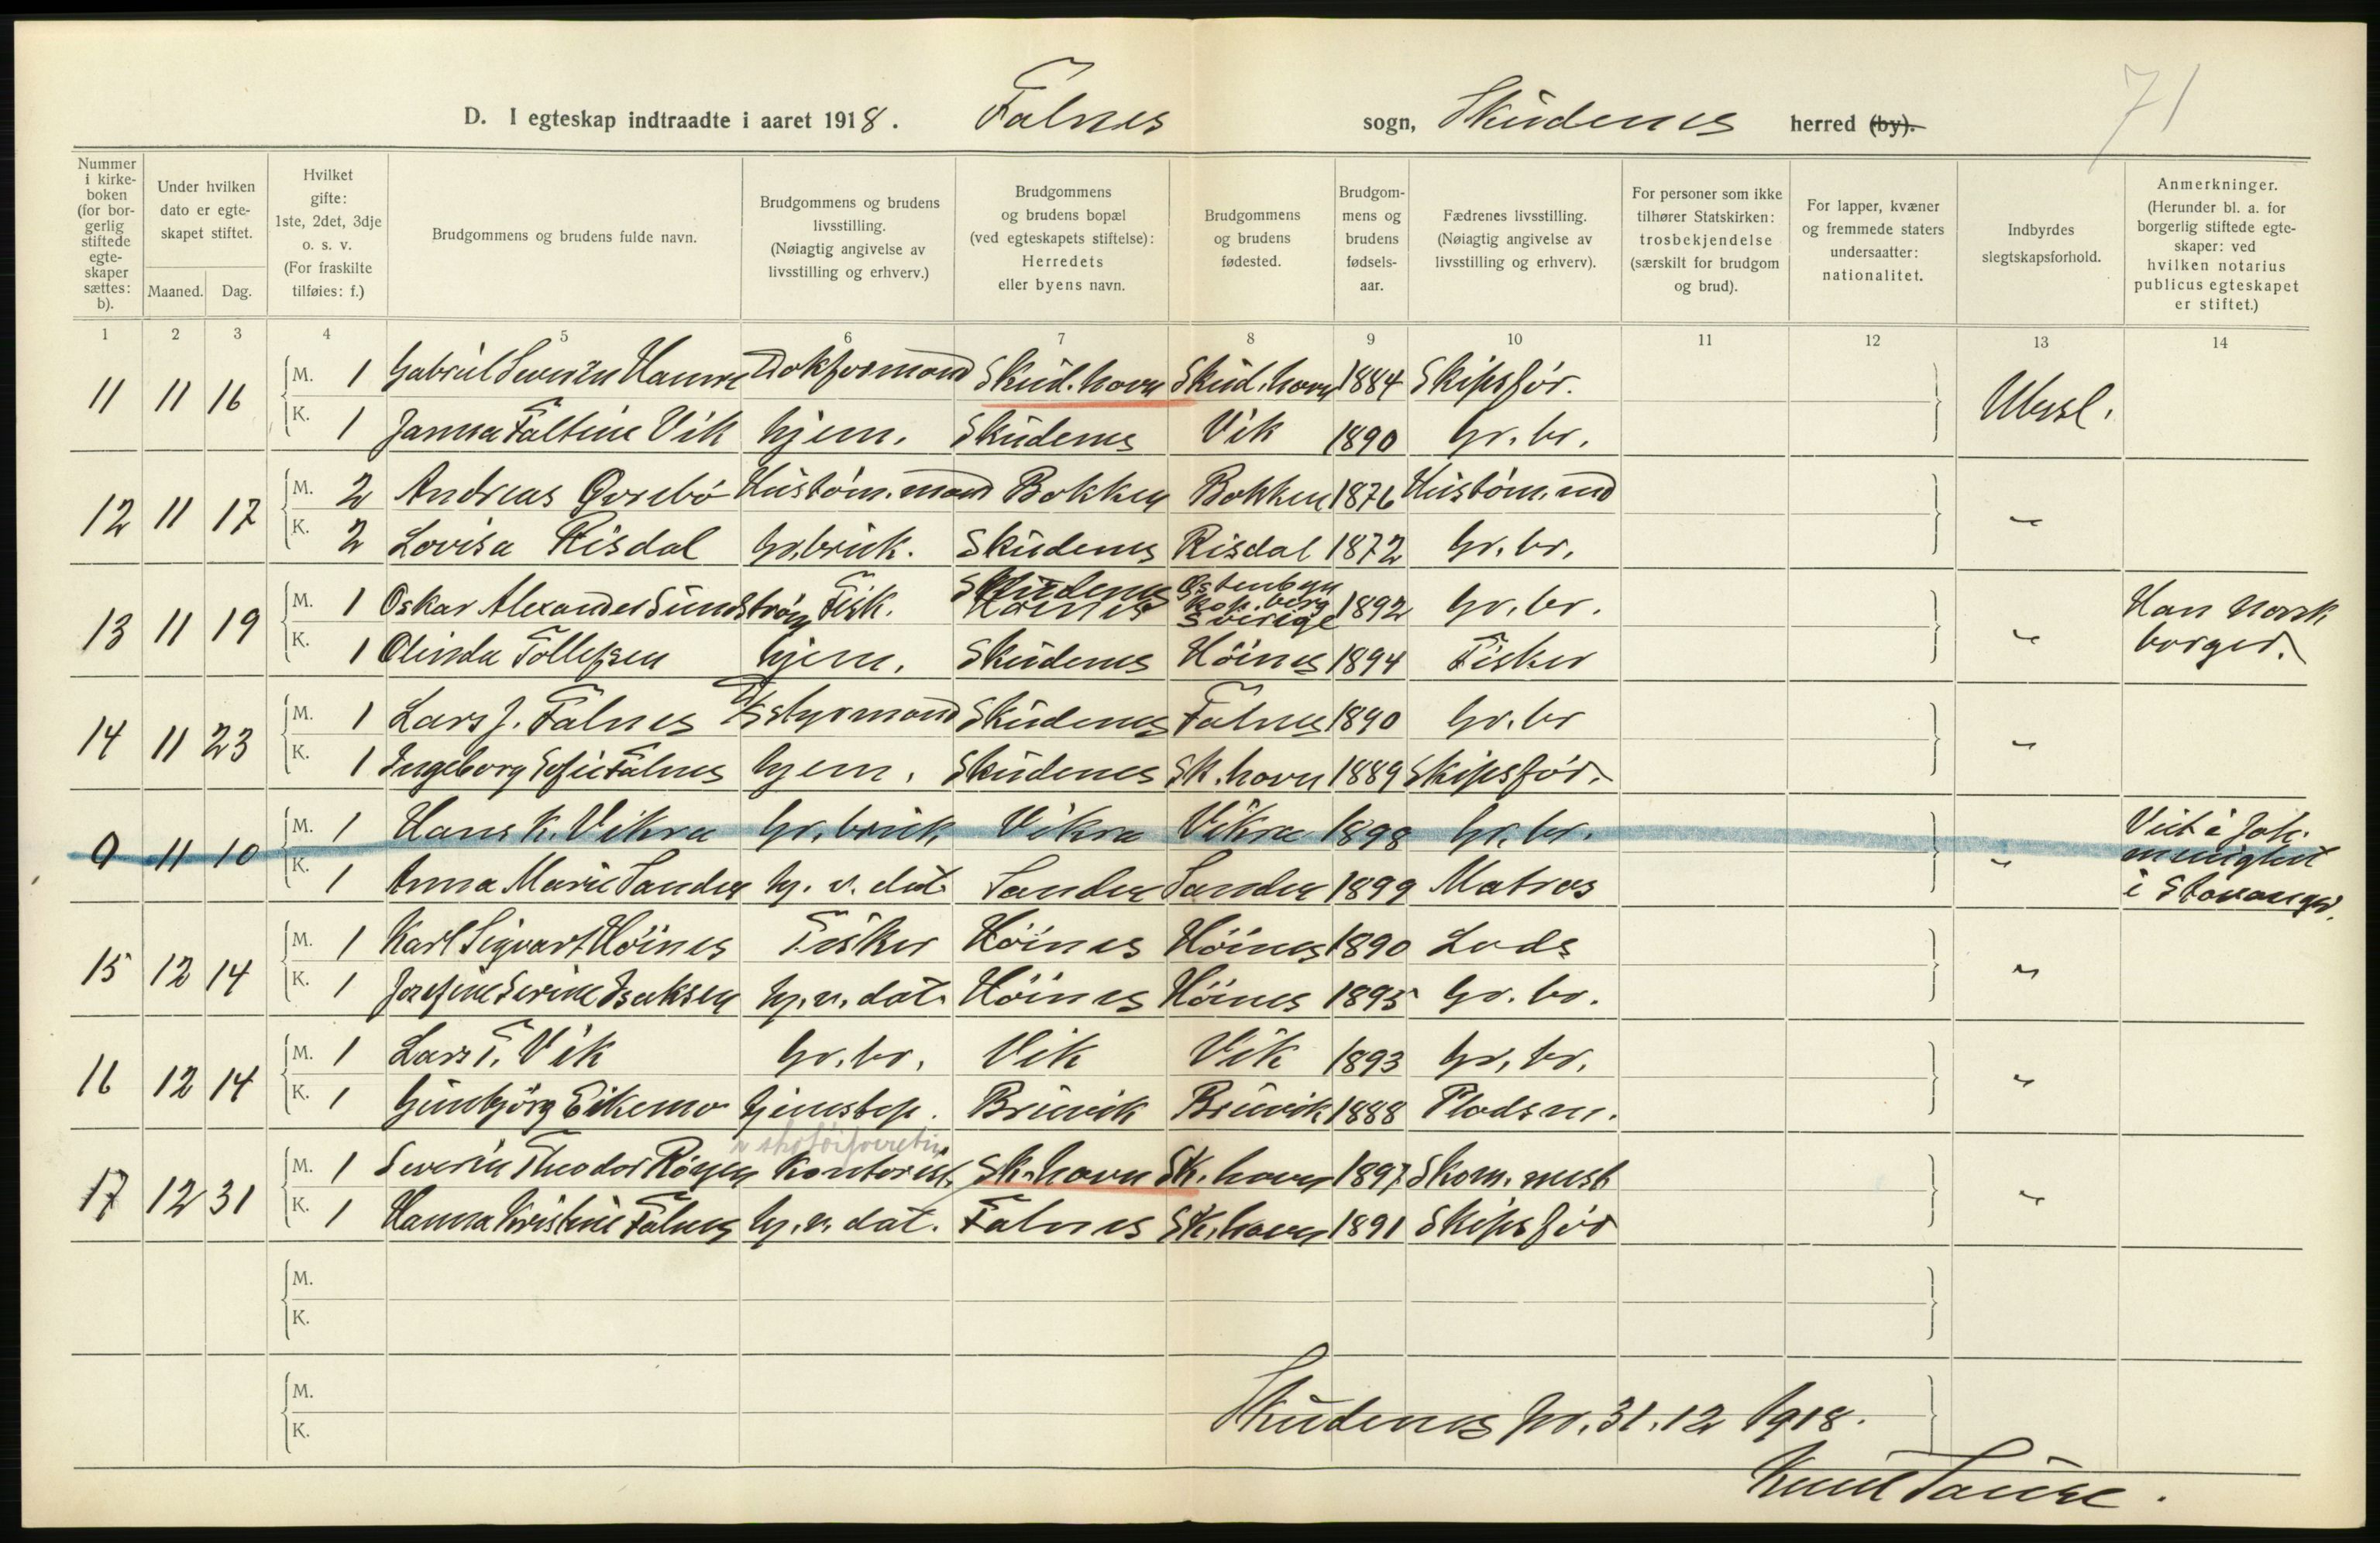 71
D. I egteskap indtraadte i aaret 1918. Falnes sogn, Skudenes herred (by).
Nummer i kirke-boken (for bor-gerlig stiftede egte-skaper sættes: b).
Under hvilken dato er egte-skapet stiftet.
Maaned. Dag.
Hvilket gifte: 1ste, 2det, 3dje o. s. v. (For fraskilte tilføies: f.)
Brudgommens og brudens fulde navn.
Brudgommens og brudens livsstilling. (Nøiagtig angivelse av livsstilling og erhverv.)
Brudgommens og brudens bopæl (ved egteskapets stiftelse): Herredets eller byens navn.
Brudgommens og brudens fødested.
Brudgom-mens og brudens fødsels-aar.
Fædrenes livsstilling. (Nøiagtig angivelse av livsstilling og erhverv).
For personer som ikke tilhører Statskirken: trosbekjendelse (særskilt for brudgom og brud).
For lapper, kvæner og fremmede staters undersaatter: nationalitet.
Indbyrdes slegtskapsforhold.
Anmerkninger. (Herunder bl. a. for borgerlig stiftede egte-skaper: ved hvilken notarius publicus egteskapet er stiftet.)
1 2 3 4 5 6 7 8 9 10 11 12 13 14
11 11 16 M. 1 Gabriel Hamre Dokformand Skud.havn Skud.havn 1884 Skipsfør. Ubesl.
K. 1 Janna Faltine Vik hjem. Skudenes Vik 1890 Gr. br.
12 11 17 M. 2 Andreas Grebø Hustøm.mand Bokken Bokken 1876 Hustøm.md "
K. 2 Lovisa Risdal Gr.bruk. Skudenes Risdal 1872 Gr. br.
13 11 19 M. 1 Oskar Alexander Sundstrøm Fisk. Skudenes Høines Sverige 1892 Gr. br. " Han norsk borger.
K. 1 Olinda Tollefsen hjem. Skudenes Høines 1894 Fisker
14 11 23 M. 1 Lars J. Falnes styrmand Skudenes Falnes 1890 Gr. br "
K. 1 Ingeborg Sofie Falnes hjem. Skudenes Sk.havn 1889 Skipsfør.
9 11 10 M. 1 Hans K. Vikra Gr. bruk. Vikra Vikra 1898 Gr. br. " Viet i Joh. menighet i Stavanger.
K. 1 Anna Marie Sandez hj. v. dat. Sandez Sandez 1899 Matros
15 12 14 M. 1 Karl Sigvart Høines Fisker Høines Høines 1890 Lods "
K. 1 Josefine Serine Isaksen hj. v. dat. Høines Høines 1895 Gr. br.
16 12 14 M. 1 Lars T. Vik Gr. br. Vik Vik 1893 Gr. br. "
K. 1 Gunbjörg Eikemo hjemstop. Bruvik Bruvik 1888 Pladsm.
17 12 31 M. 1 Severin Theodor Røyen Kontorist. Sk.havn Sk.havn 1897 Skom. mest "
K. 1 Hanna Kristine Falnes hj. v. dat. Falnes Sk.havn 1891 Skipsfør
M.
K.
M.
K.
Skudenes pr. 31.12 1918.
Knut